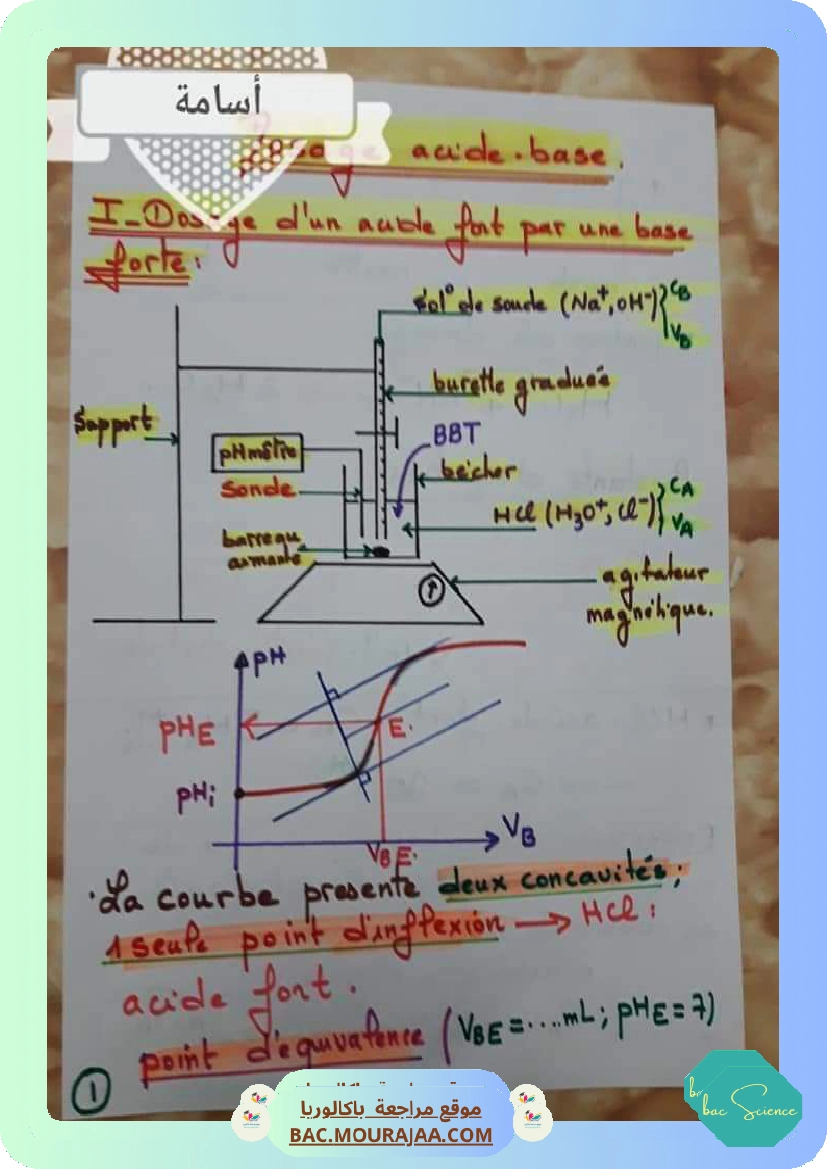 أسامة
Dosage acide-base.
I-Dosage d'un acide fort par une base
forte:
Sol° de soude (Na⁺, OH⁻) { CB
VB
burette graduée
Support
BBT
pHmètre
bécher
Sonde
HCl (H₃O⁺, Cl⁻) { CA
VA
barreau
aimanté
agitateur
magnétique.
pH
pHE
E.
pHi
VB
VBE.
. La courbe presente deux concavités;
1 seule point d'inflexion → HCl:
acide fort.
point d'equivalence (VBE = ....mL; pHE = 7)
1
موقع مراجعة باكالوريا
BAC.MOURAJAA.COM
bac Science